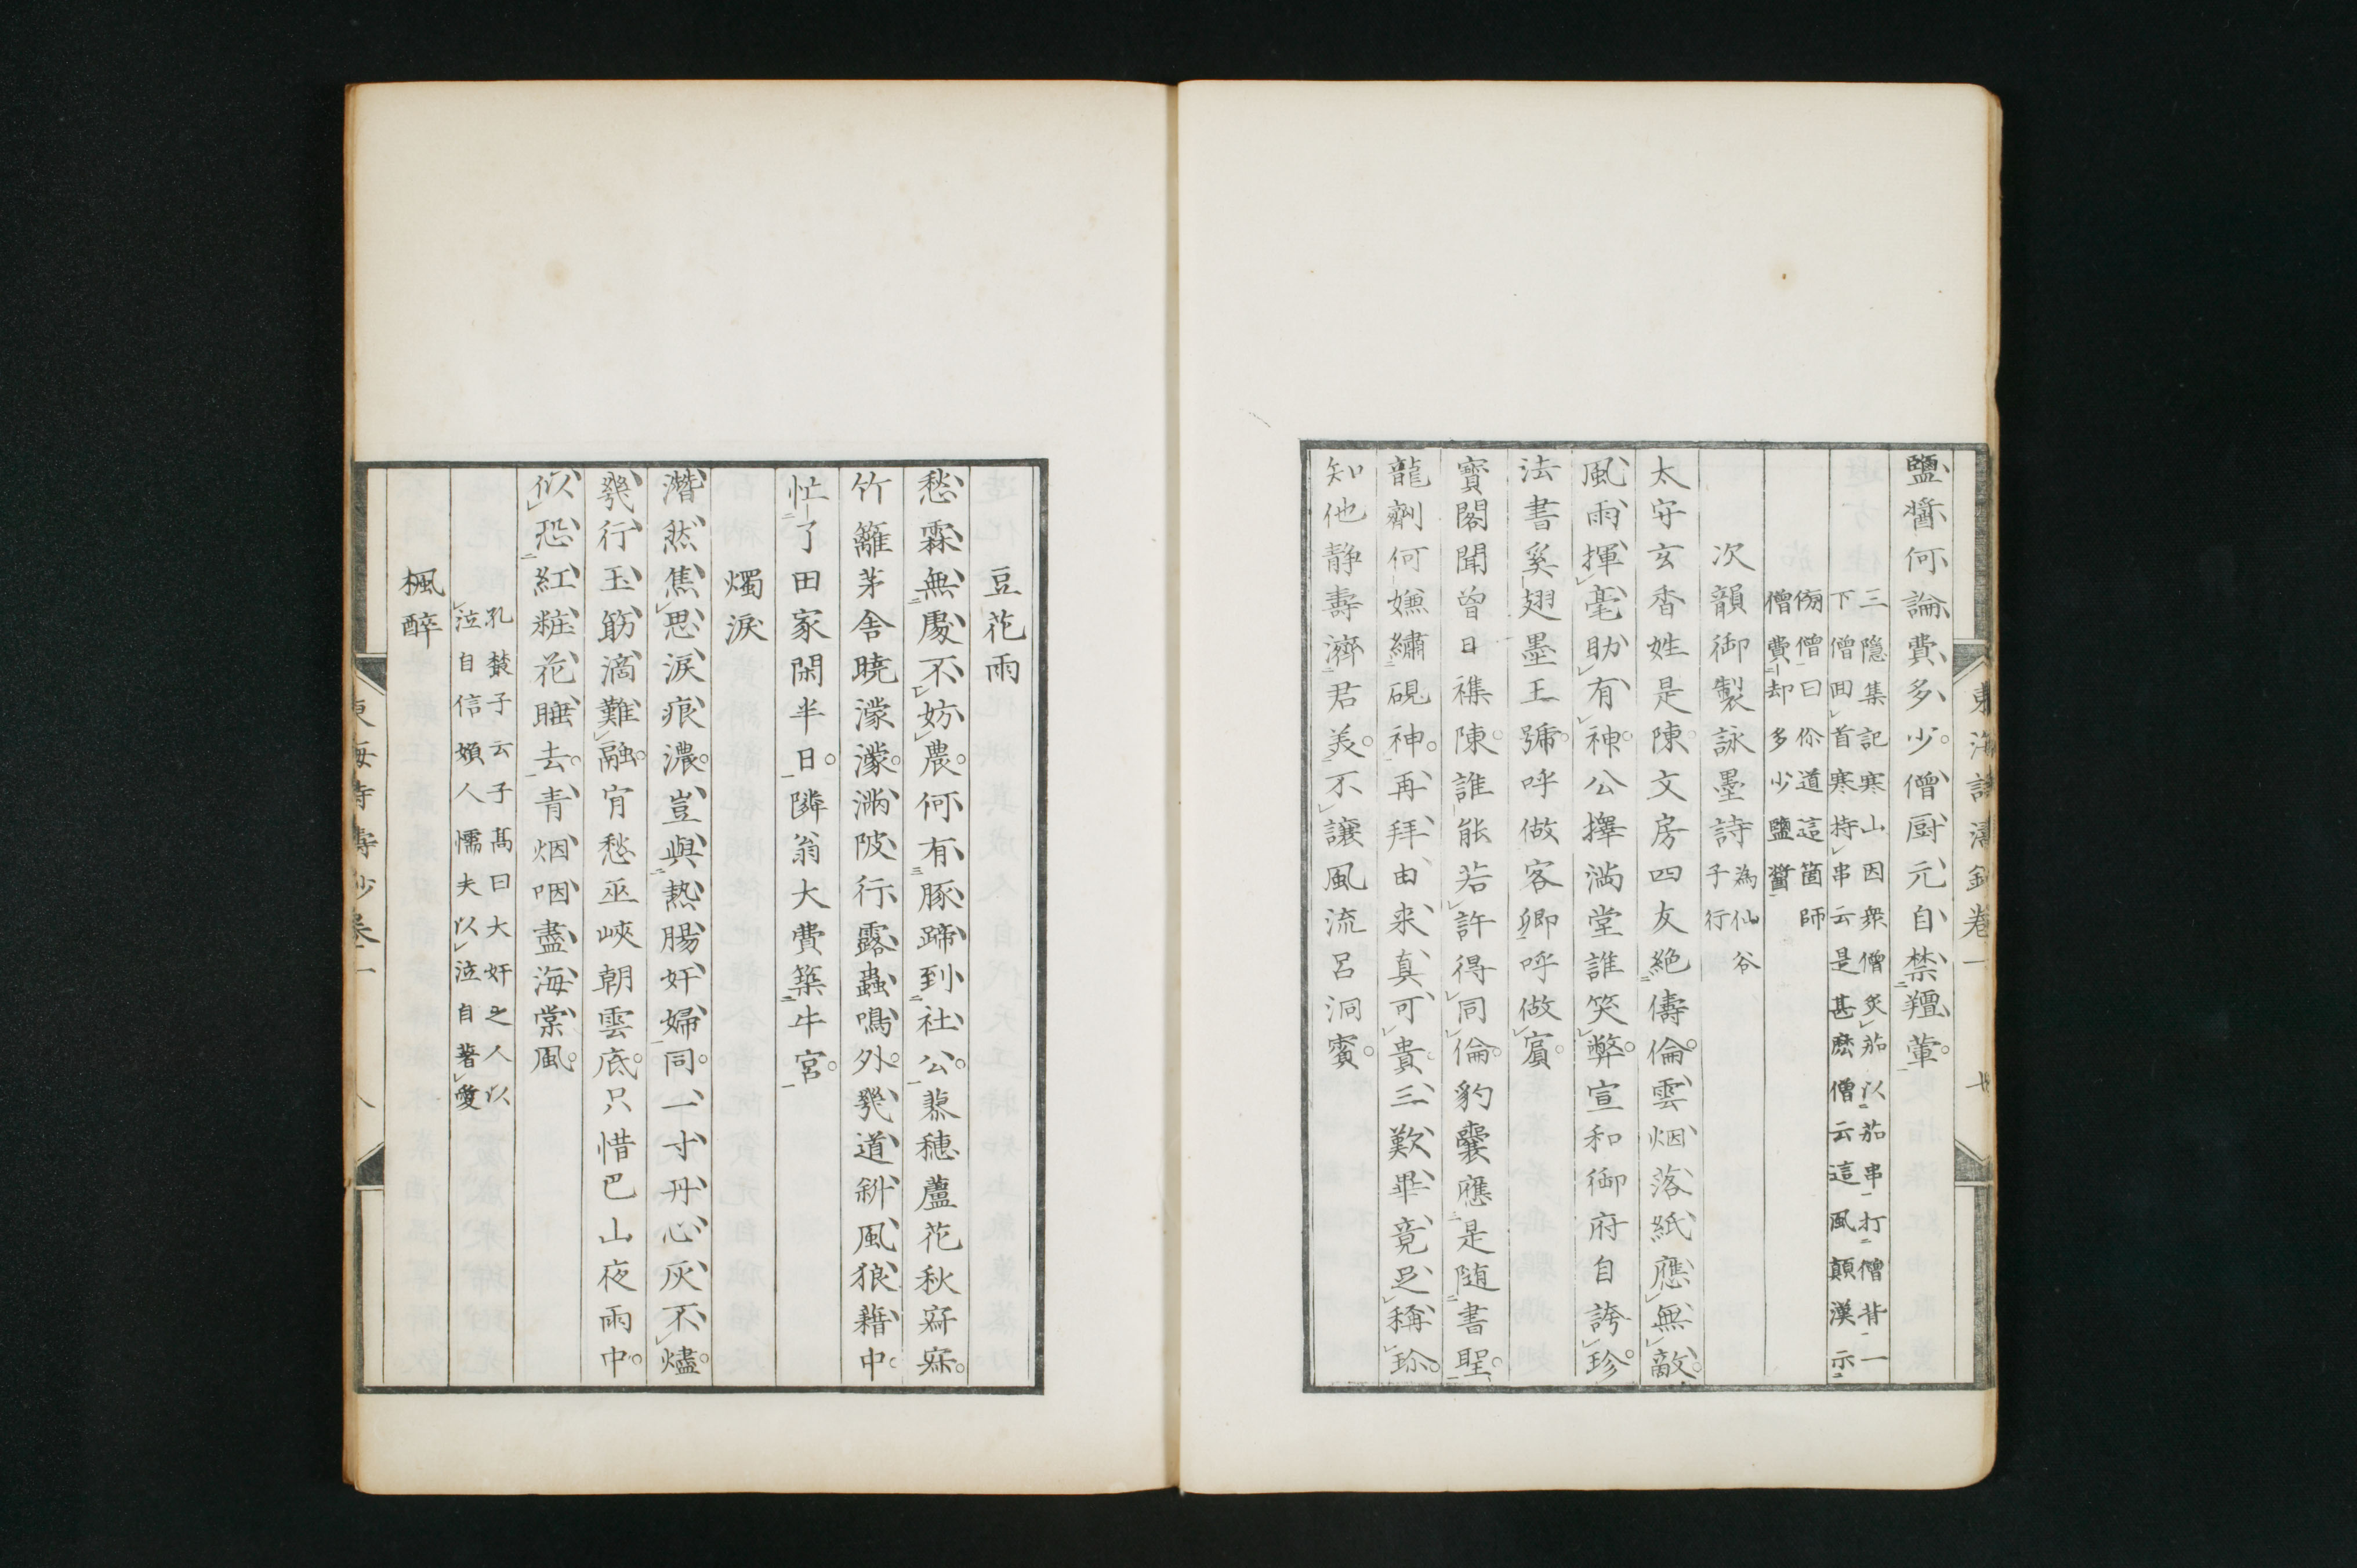 鹽醬何論費多少僧厨元自禁羶葷
三隱集記寒山因衆僧炙茄以茄串打僧背一
下僧回首寒持串云是甚麽僧云這風顛漢示
傍僧曰你道這箇師
僧費却多少鹽醬
次韻御製詠墨詩為仙谷
子行
太守玄香姓是陳文房四友絶儔倫雲烟落紙應無敵
風雨揮毫助有神公擇滿堂誰笑弊宣和御府自誇珍
法書奚翅墨王號呼做客卿呼做賓
寳閣聞曾日襍陳誰能若許得同倫豹囊應是随書聖
龍劑何嫌繡硯神再拜由来真可貴三歎畢竟足稱珎
知他静壽濟君美不讓風流呂洞賓
東海詩濤鈔卷一
豆花雨
愁霖無處不妨農何有豚蹄到社公蓼穗蘆花秋寂寐
竹籬茅舎曉濛濛滿陂行露蟲鳴外幾道斜風狼藉中
忙了田家閑半日隣翁大費築牛宮
燭淚
潸然焦思淚痕濃豈與熱腸奸婦同一寸丹心灰不燼
幾行玉筯滴難融宵愁巫峽朝雲底只惜巴山夜雨中
似恐紅粧花睡去青烟咽盡海棠風
孔叢子云子髙曰大奸之人以
泣自信嬾人懦夫以泣自著愛
楓醉
東海詩濤鈔卷一
八